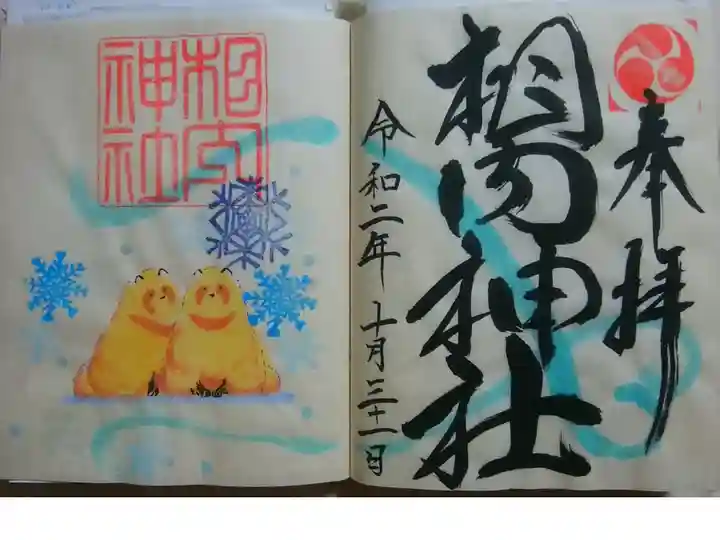 奉拝
相内神社
令和二年十月三十一日
相内
神社